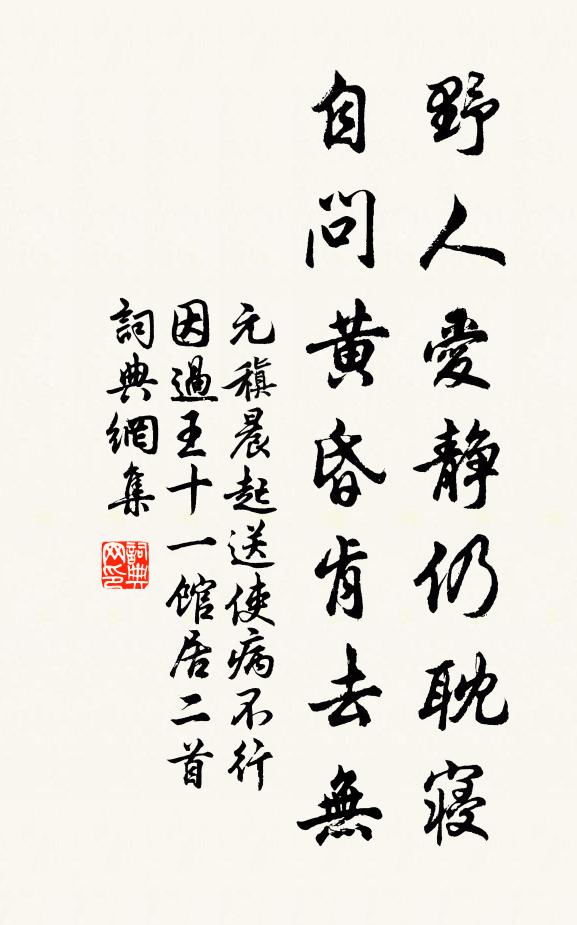 野人愛静仍耽寢
自問黃昏肯去無
元稹晨起送使病不行
因過王十一館居二首
詞典網集
詞典网印